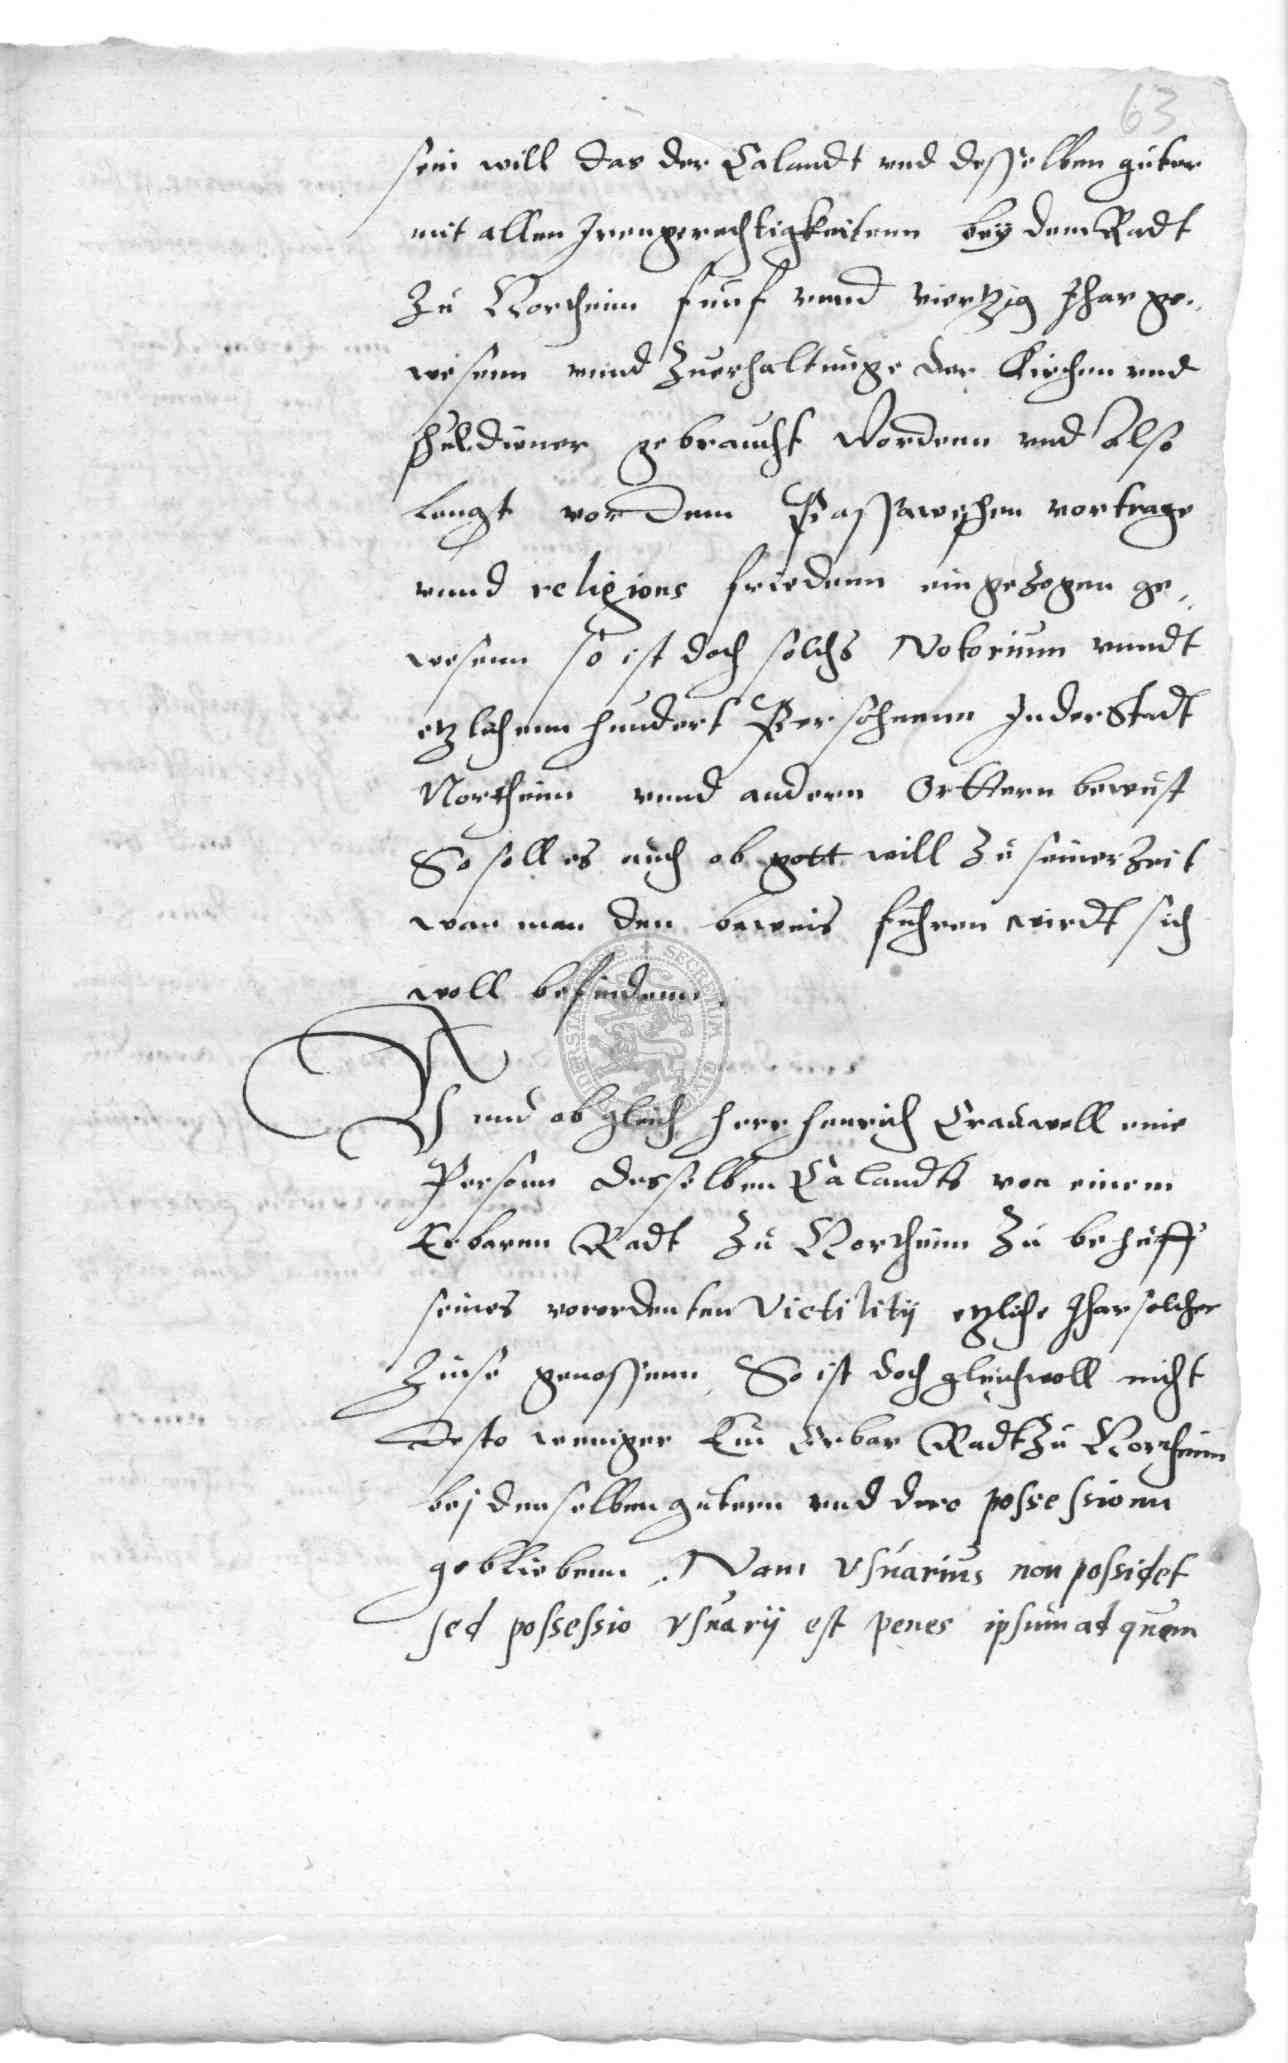 63
sein will das der Calandt vnd desselben guter
mit allen Iren gerechtigkeitenn bey dem Radt
zu Northeim funf vnnd viertzig Jhar ge-
wesenn vnnd zuerhaltunge der Kirchen vnd
schuldiener gebraucht wordenn vnd also
lengst vor dem Passawischen vortrage
vnnd religions friedenn eingezogen ge-
wesenn so ist doch solchs Notorium vnndt
etzlichenn hundert Persohnenn In der Stadt
Northeim vnnd andern Ortternn bewust
So soll es auch ob gott will zu seiner zeit
wan man den beweis fuhren wirdt sich
woll befindenn.
SECRETUM
Vnnd ob gleich herr Henrich Cradwell eine
Personn desselben Calandts von einem
Erbarnn Radt zu Northeim zu behuff
seines verordenten victilitij etzliche Jhar solcher
Zinse genossenn, So ist doch gleichwoll nicht
desto weniger Ein Erbar Radt zu Northeim
bei denselben gutern vnd dero possessionn
gebliebenn. Nam vsuarius non possidet
sed possessio vsuarij est penes ipsum ad quem